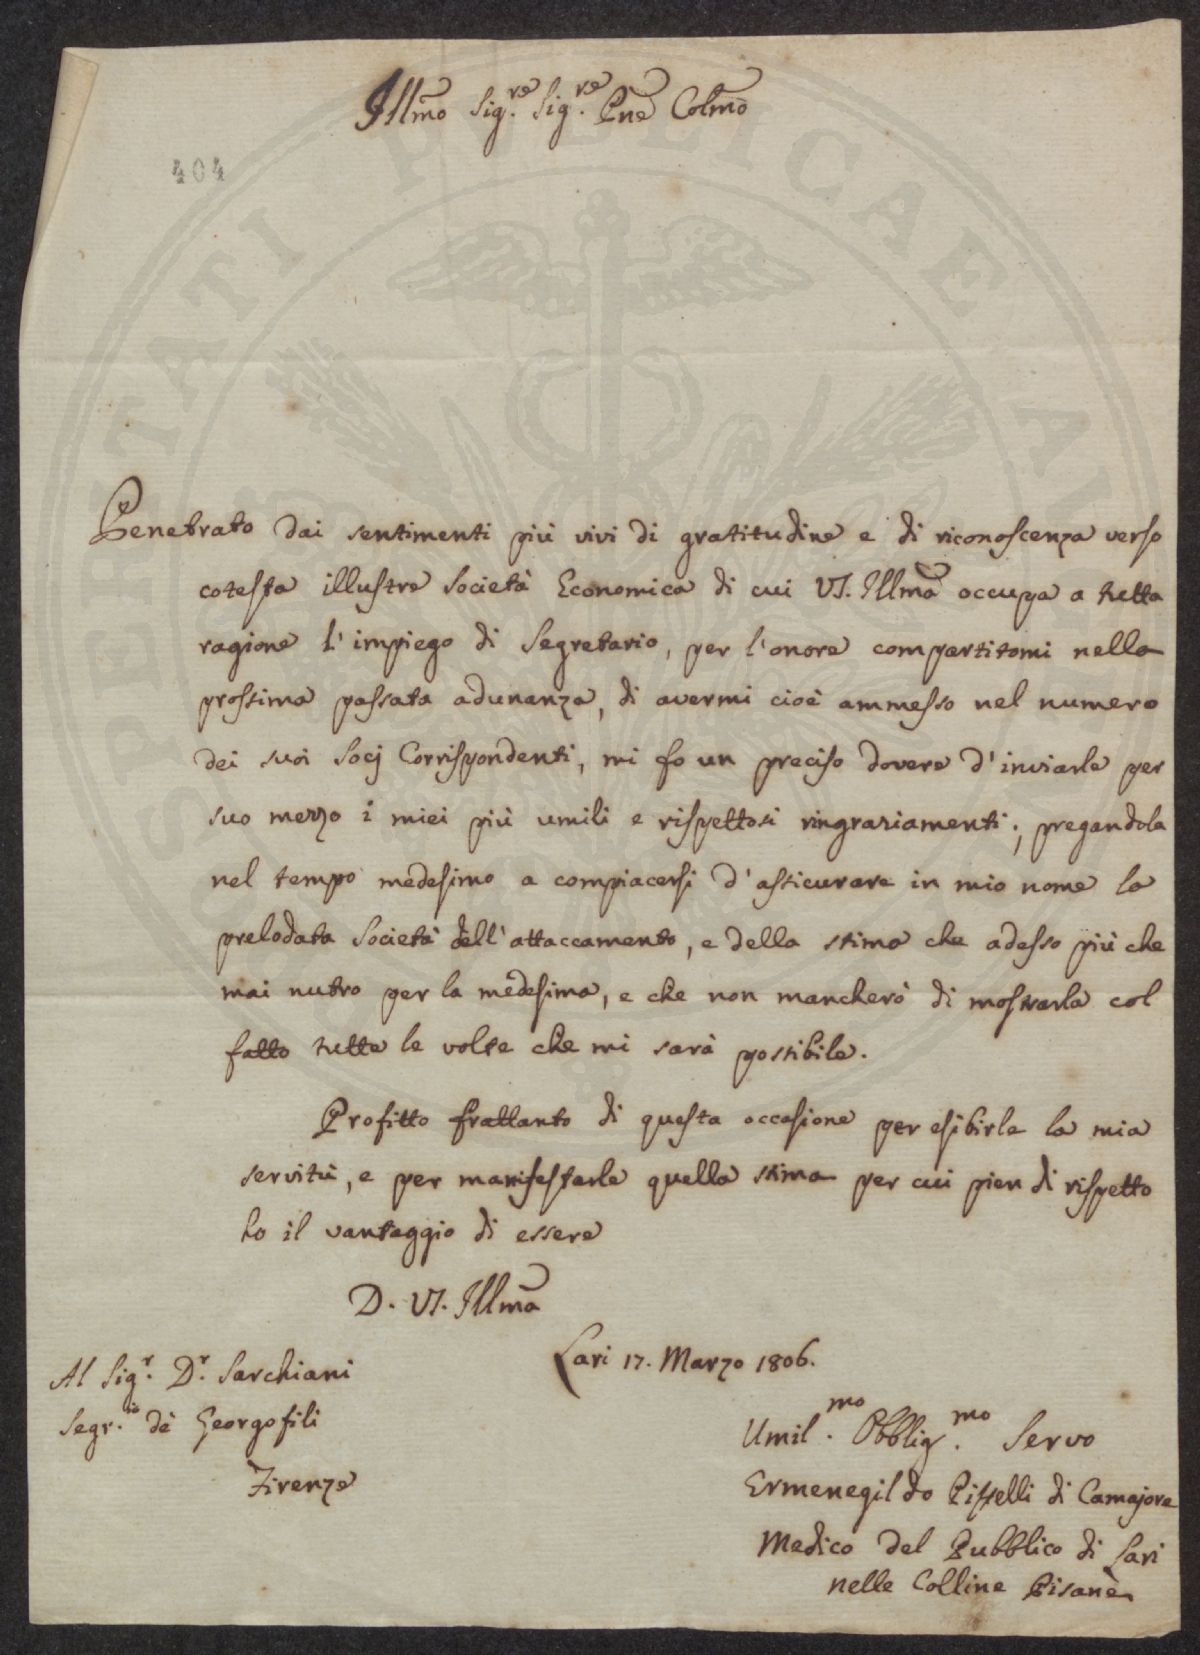 Illmo Sig.re Sig.re Pne Colmo
404
Penetrato dai sentimenti più vivi di gratitudine e di riconoscenza verso
cotesta illustre Società Economica di cui VS. Illma occupa a tutta
ragione l'impiego di Segretario, per l'onore compartitomi nella
prossima passata adunanza, di avermi cioè ammesso nel numero
dei suoi Socj Corrispondenti, mi fo un preciso dovere d'inviarle per
suo mezzo i miei più umili e rispettosi ringraziamenti; pregandola
nel tempo medesimo a compiacersi d'assicurare in mio nome la
prelodata Società dell'attaccamento, e della stima che adesso più che
mai nutro per la medesima, e che non mancherò di mostrarla col
fatto tutte le volte che mi sarà possibile.
Profitto frattanto di questa occasione per esibirle la mia
servitù, e per manifestarle quella stima per cui pien di rispetto
ho il vantaggio di essere
D. VS. Illma
Lari 17. Marzo 1806.
Al Sig.r D.r Sarchiani
Segr.io dè Georgofili
Firenze
Umil.mo Obblig.mo Servo
Ermenegildo di Camajore
Medico del Pubblico di Lari
nelle Colline Pisane